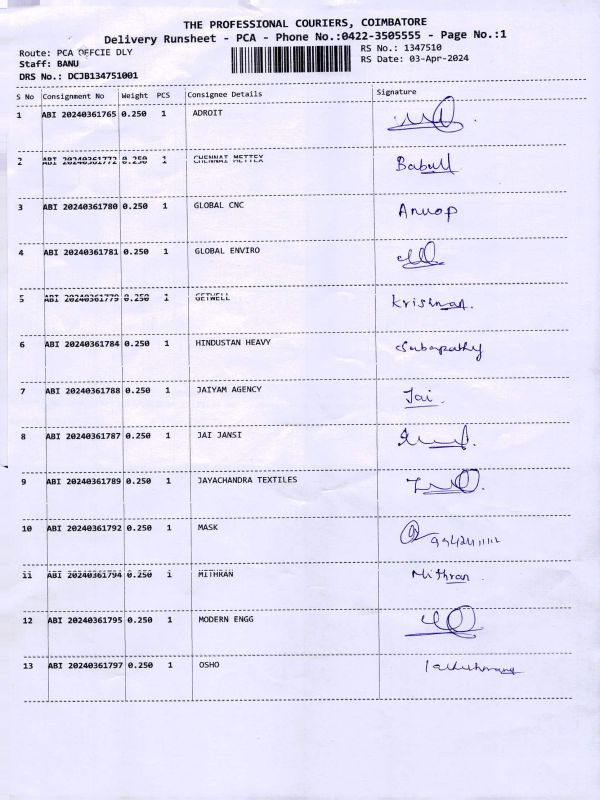 THE PROFESSIONAL COURIERS, COIMBATORE
Delivery Runsheet - PCA - Phone No.:0422-3505555 - Page No.:1
Route: PCA OFFCIE DLY RS No.: 1347510
Staff: BANU RS Date: 03-Apr-2024
DRS No.: DCJB134751001
S No Consignment No Weight PCS Consignee Details Signature
1 ABI 20240361765 0.250 1 ADROIT
2 ABI 20240361772 0.250 1 CHENNAI METTEX Babull
3 ABI 20240361780 0.250 1 GLOBAL CNC Anuop
4 ABI 20240361781 0.250 1 GLOBAL ENVIRO
5 ABI 20240361779 0.250 1 GETWELL Krishnan.
6 ABI 20240361784 0.250 1 HINDUSTAN HEAVY Subapathy
7 ABI 20240361788 0.250 1 JAIYAM AGENCY Jai.
8 ABI 20240361787 0.250 1 JAI JANSI
9 ABI 20240361789 0.250 1 JAYACHANDRA TEXTILES
10 ABI 20240361792 0.250 1 MASK
11 ABI 20240361794 0.250 1 MITHRAN Mithran.
12 ABI 20240361795 0.250 1 MODERN ENGG
13 ABI 20240361797 0.250 1 OSHO